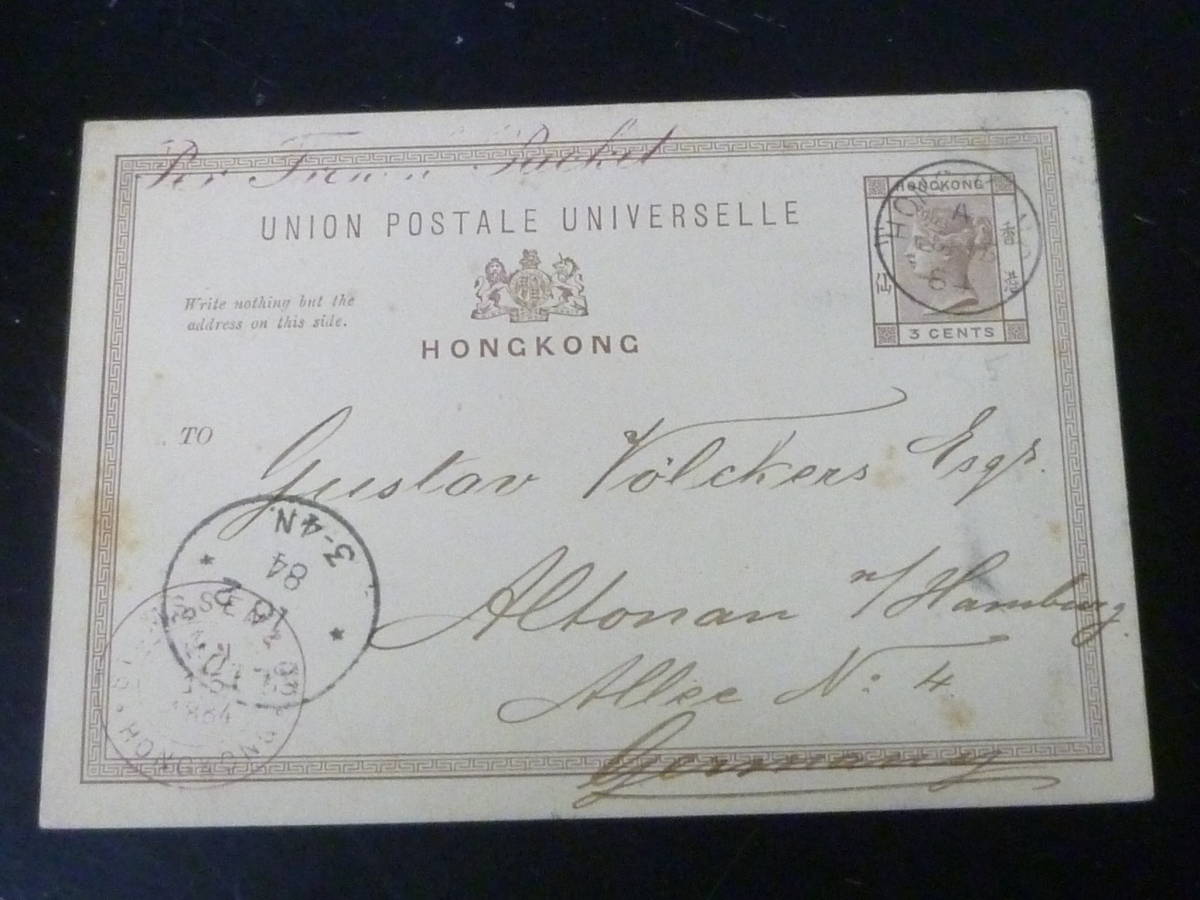 Per French Packet
UNION POSTALE UNIVERSELLE
HONGKONG
香港
仙
3 CENTS
HONG KONG
A
Write nothing but the
address on this side.
HONGKONG
TO
Gustav Völckers Esqr.
Altonan n/ Hamburg.
Allee No: 4.
Germany
3-4N.
84
HONGKONG
1884